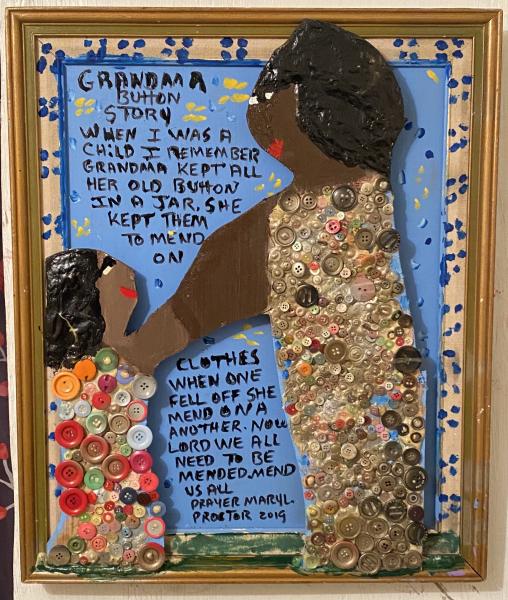 GRANDMA
BUTTON
STORY
WHEN I WAS A
CHILD I REMEMBER
GRANDMA KEPT ALL
HER OLD BUTTON
IN A JAR. SHE
KEPT THEM
TO MEND
ON
CLOTHES
WHEN ONE
FELL OFF SHE
MEND ON A
ANOTHER. NOW
LORD WE ALL
NEED TO BE
MENDED. MEND
US ALL
PRAYER MARY L.
PROCTOR 2019